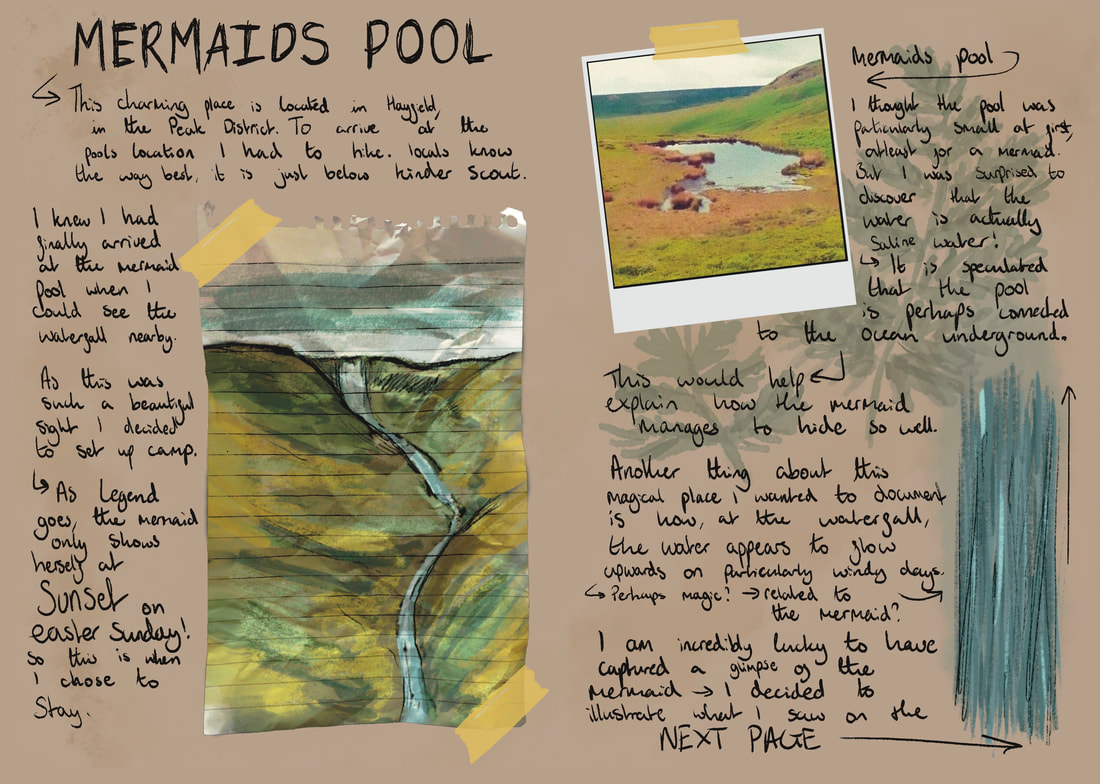 MERMAIDS POOL
This charming place is located in Hayfield,
in the Peak District. To arrive at the
pools location I had to hike. locals know
the way best, it is just below kinder scout.
I knew I had
finally arrived
at the mermaid
pool when I
could see the
waterfall nearby.
As this was
such a beautiful
sight I decided
to set up camp.
As legend
goes, the mermaid
only shows
herself at
Sunset on
easter Sunday!
so this is when
I chose to
Stay.
Mermaids pool
I thought the pool was
particularly small at first,
atleast for a mermaid.
But I was surprised to
discover that the
water is actually
Saline water!
It is speculated
that the pool
is perhaps connected
to the ocean underground.
This would help
explain how the mermaid
manages to hide so well.
Another thing about this
magical place i wanted to document
is how, at the waterfall,
the water appears to flow
upwards on particularly windy days.
Perhaps magic? → related to
the mermaid?
I am incredibly lucky to have
captured a glimpse of the
mermaid → I decided to
illustrate what I saw on the
NEXT PAGE